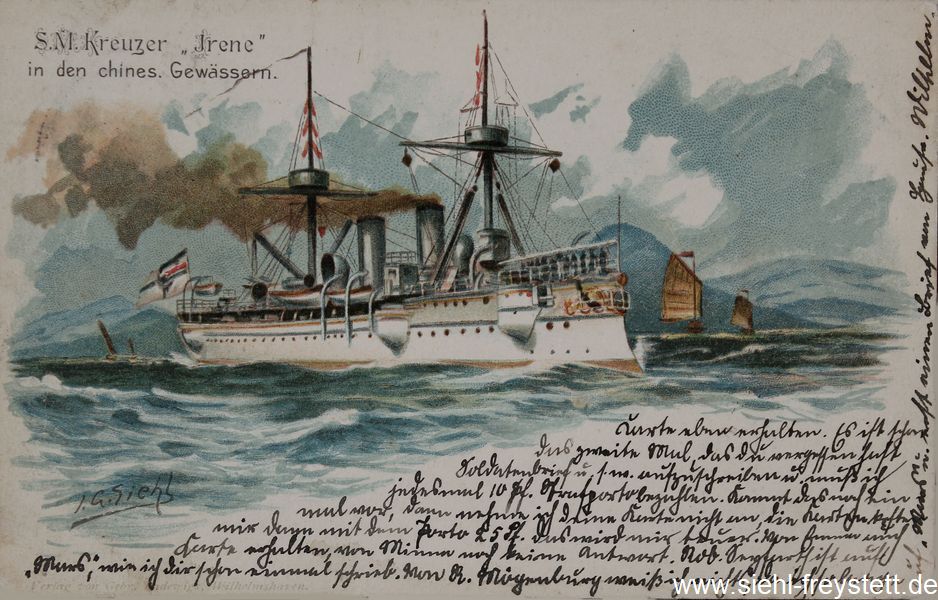 S.M. Kreuzer „Irene"
in den chines. Gewässern.
J.G. Siehl
Karte eben erhalten. Es ist schon
das zweite Mal, das du vergessen hast
Soldatenbrief u. s. w. aufzuschreiben u. muß ich
jedesmal 10 Pf. Strafporto bezahlen. Kommt das noch ein
mal vor, dann nehme ich deine Karte nicht an, die Karten kosten
mir dann mit dem Porto 25 Pf. das wird mir teuer. Von Emma auch
Karte erhalten, von Minna noch keine Antwort. Rob. ist auf
„Mars", wie ich dir schon einmal schrieb. Von R. Mögenburg weiß ich nicht
erst einen Brief von Hause. Wilhelm
Wilhelmshaven.
www.siehl-freystett.de